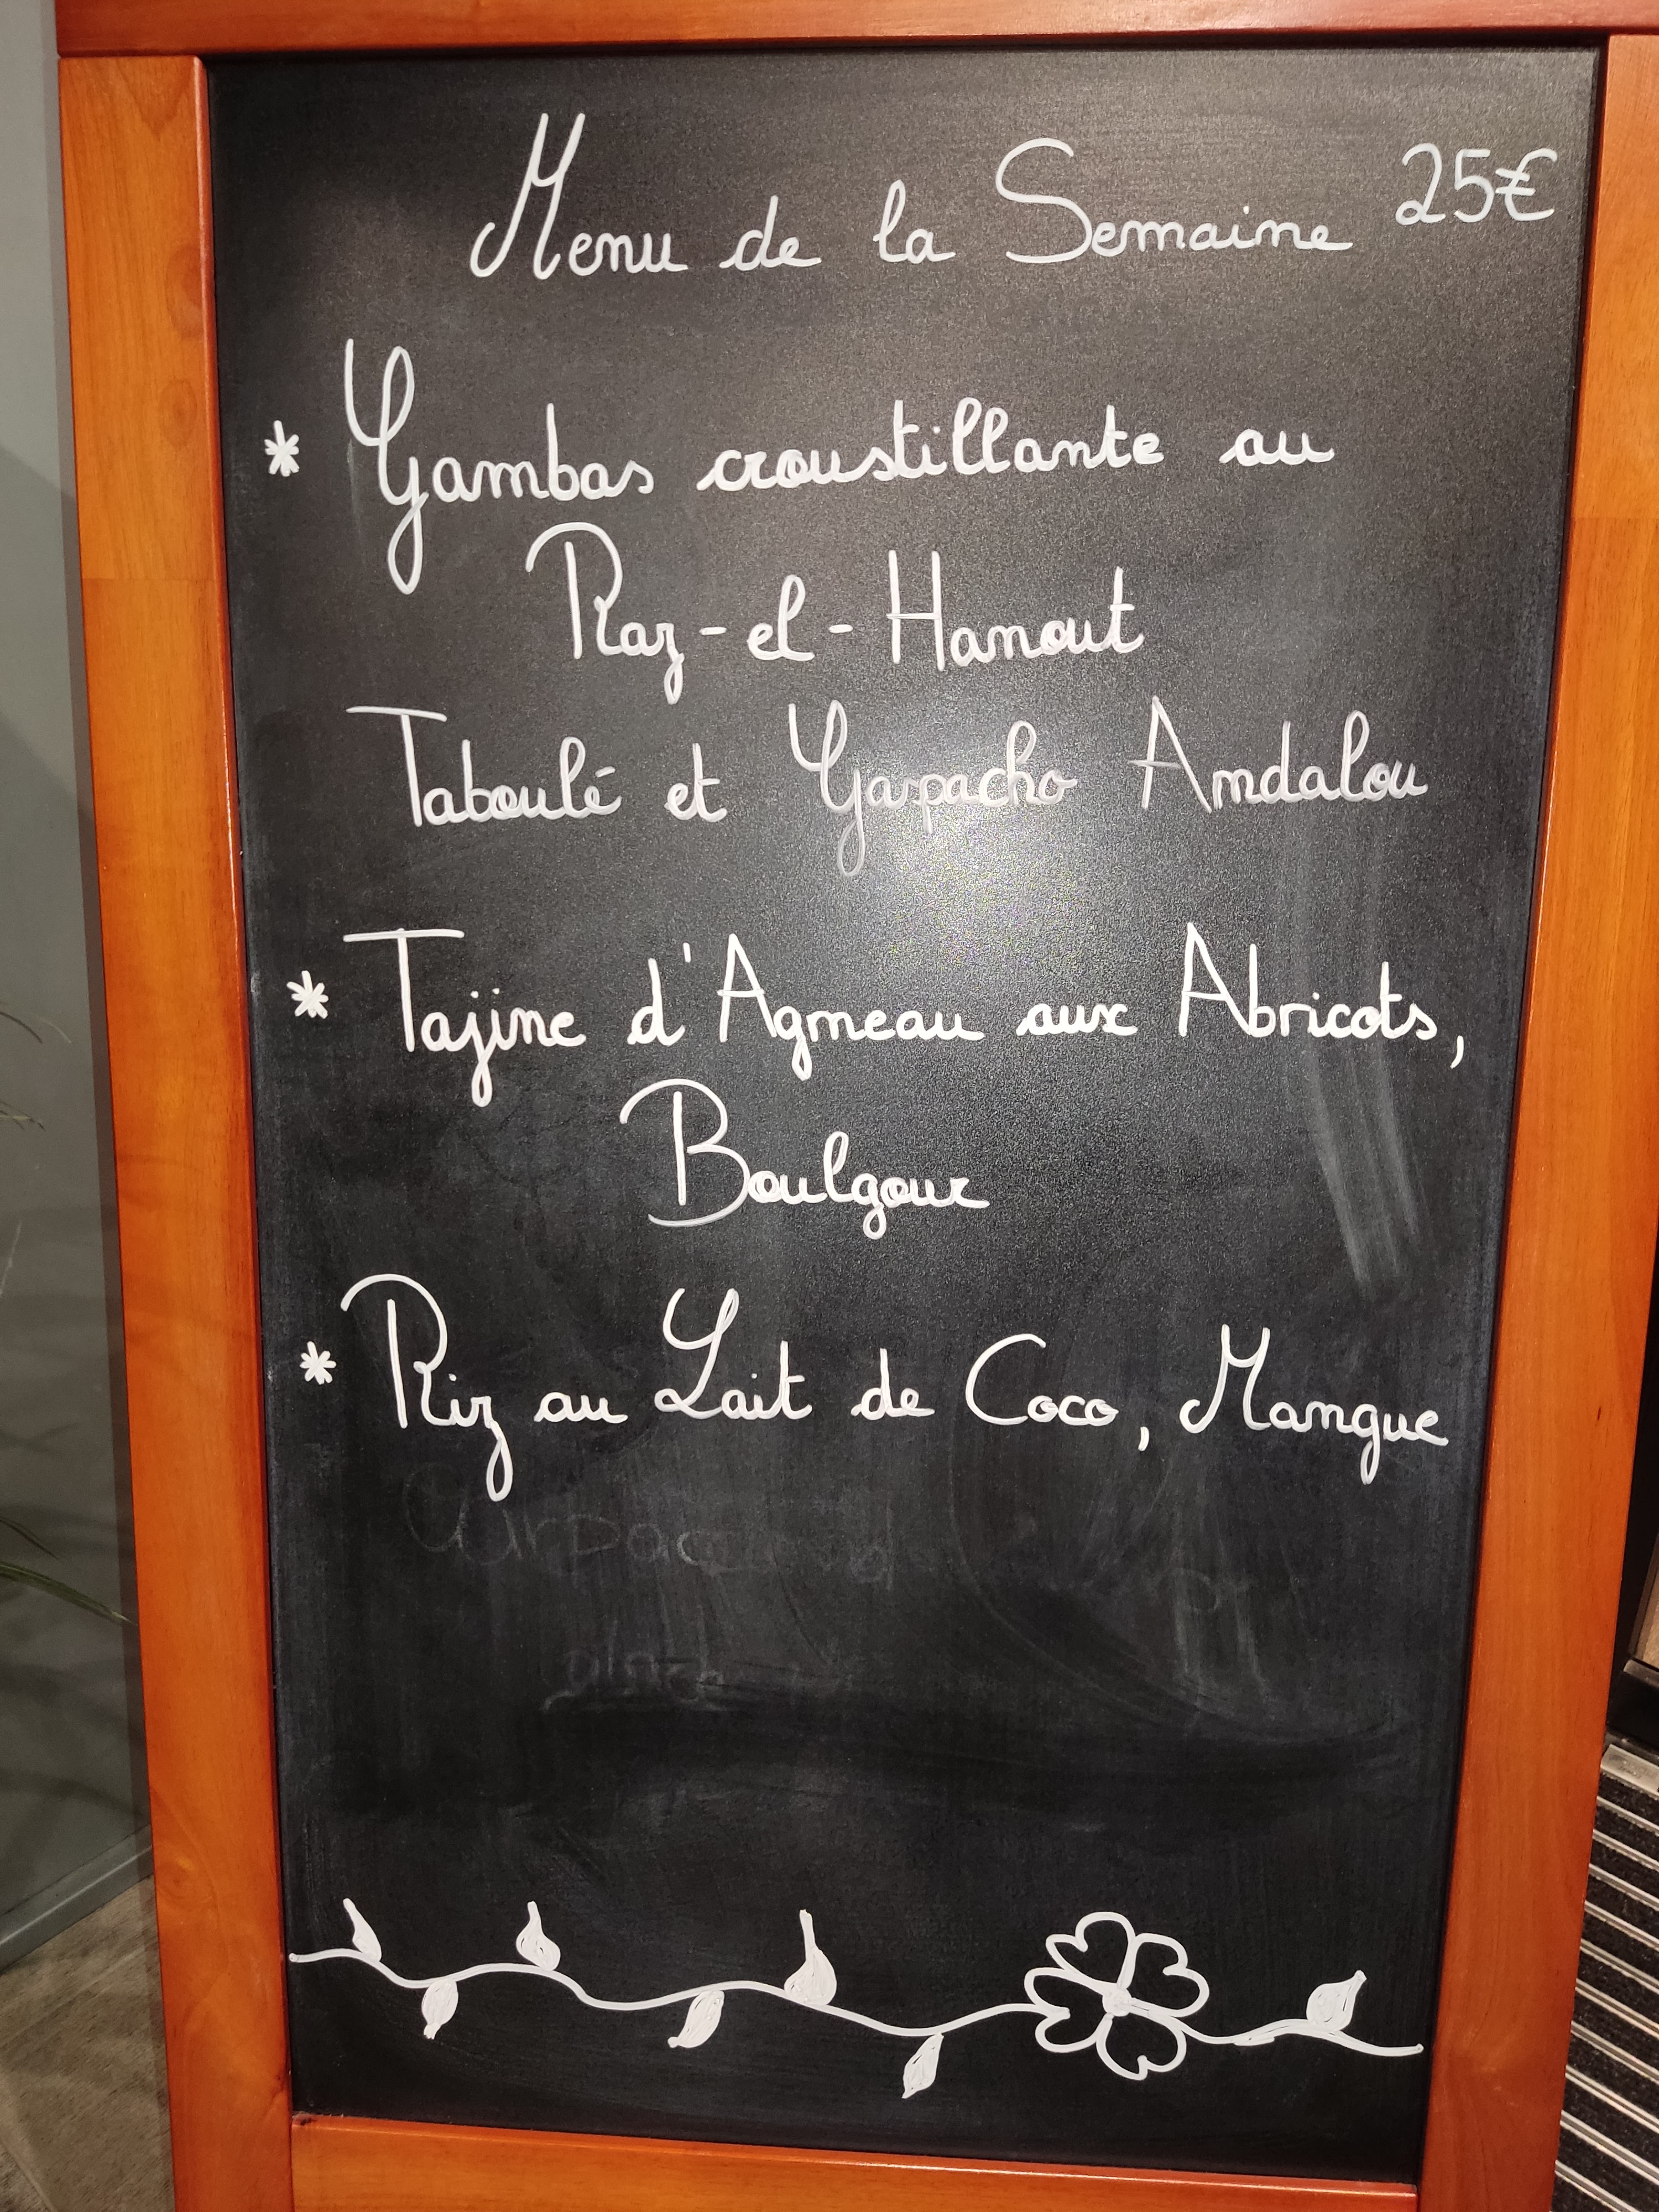 Menu de la Semaine 25€
* Gambas croustillante au
Raz-el-Hanout
Taboulé et Gaspacho Andalou
* Tajine d'Agneau aux Abricots,
Boulgour
* Riz au Lait de Coco, Mangue